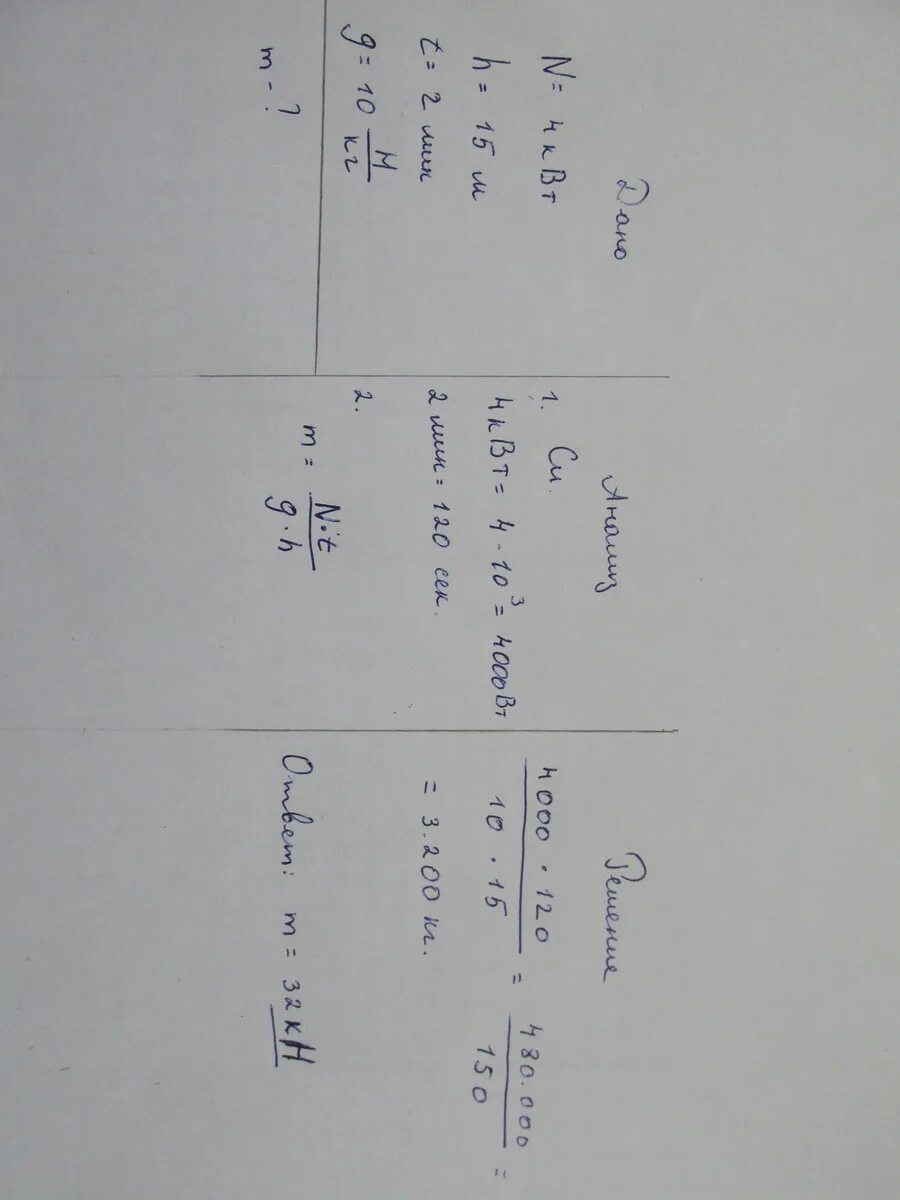 Дано
N = 4 кВт
h = 15 м
t = 2 мин
g = 10 Н/кг
m - ?
Анализ
1. Си.
4 кВт = 4 · 10³ = 4000 Вт
2 мин = 120 сек.
2.
m = N·t / g·h
Решение
4000 · 120 / 10 · 15 = 480.000 / 150 =
= 3.200 кг.
Ответ: m = 32 кН